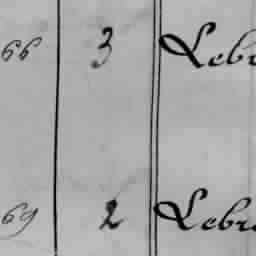 66 3 Lebr
69 2 Lebr